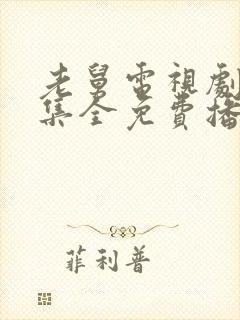 老舅電視劇
集全免費播
菲利普